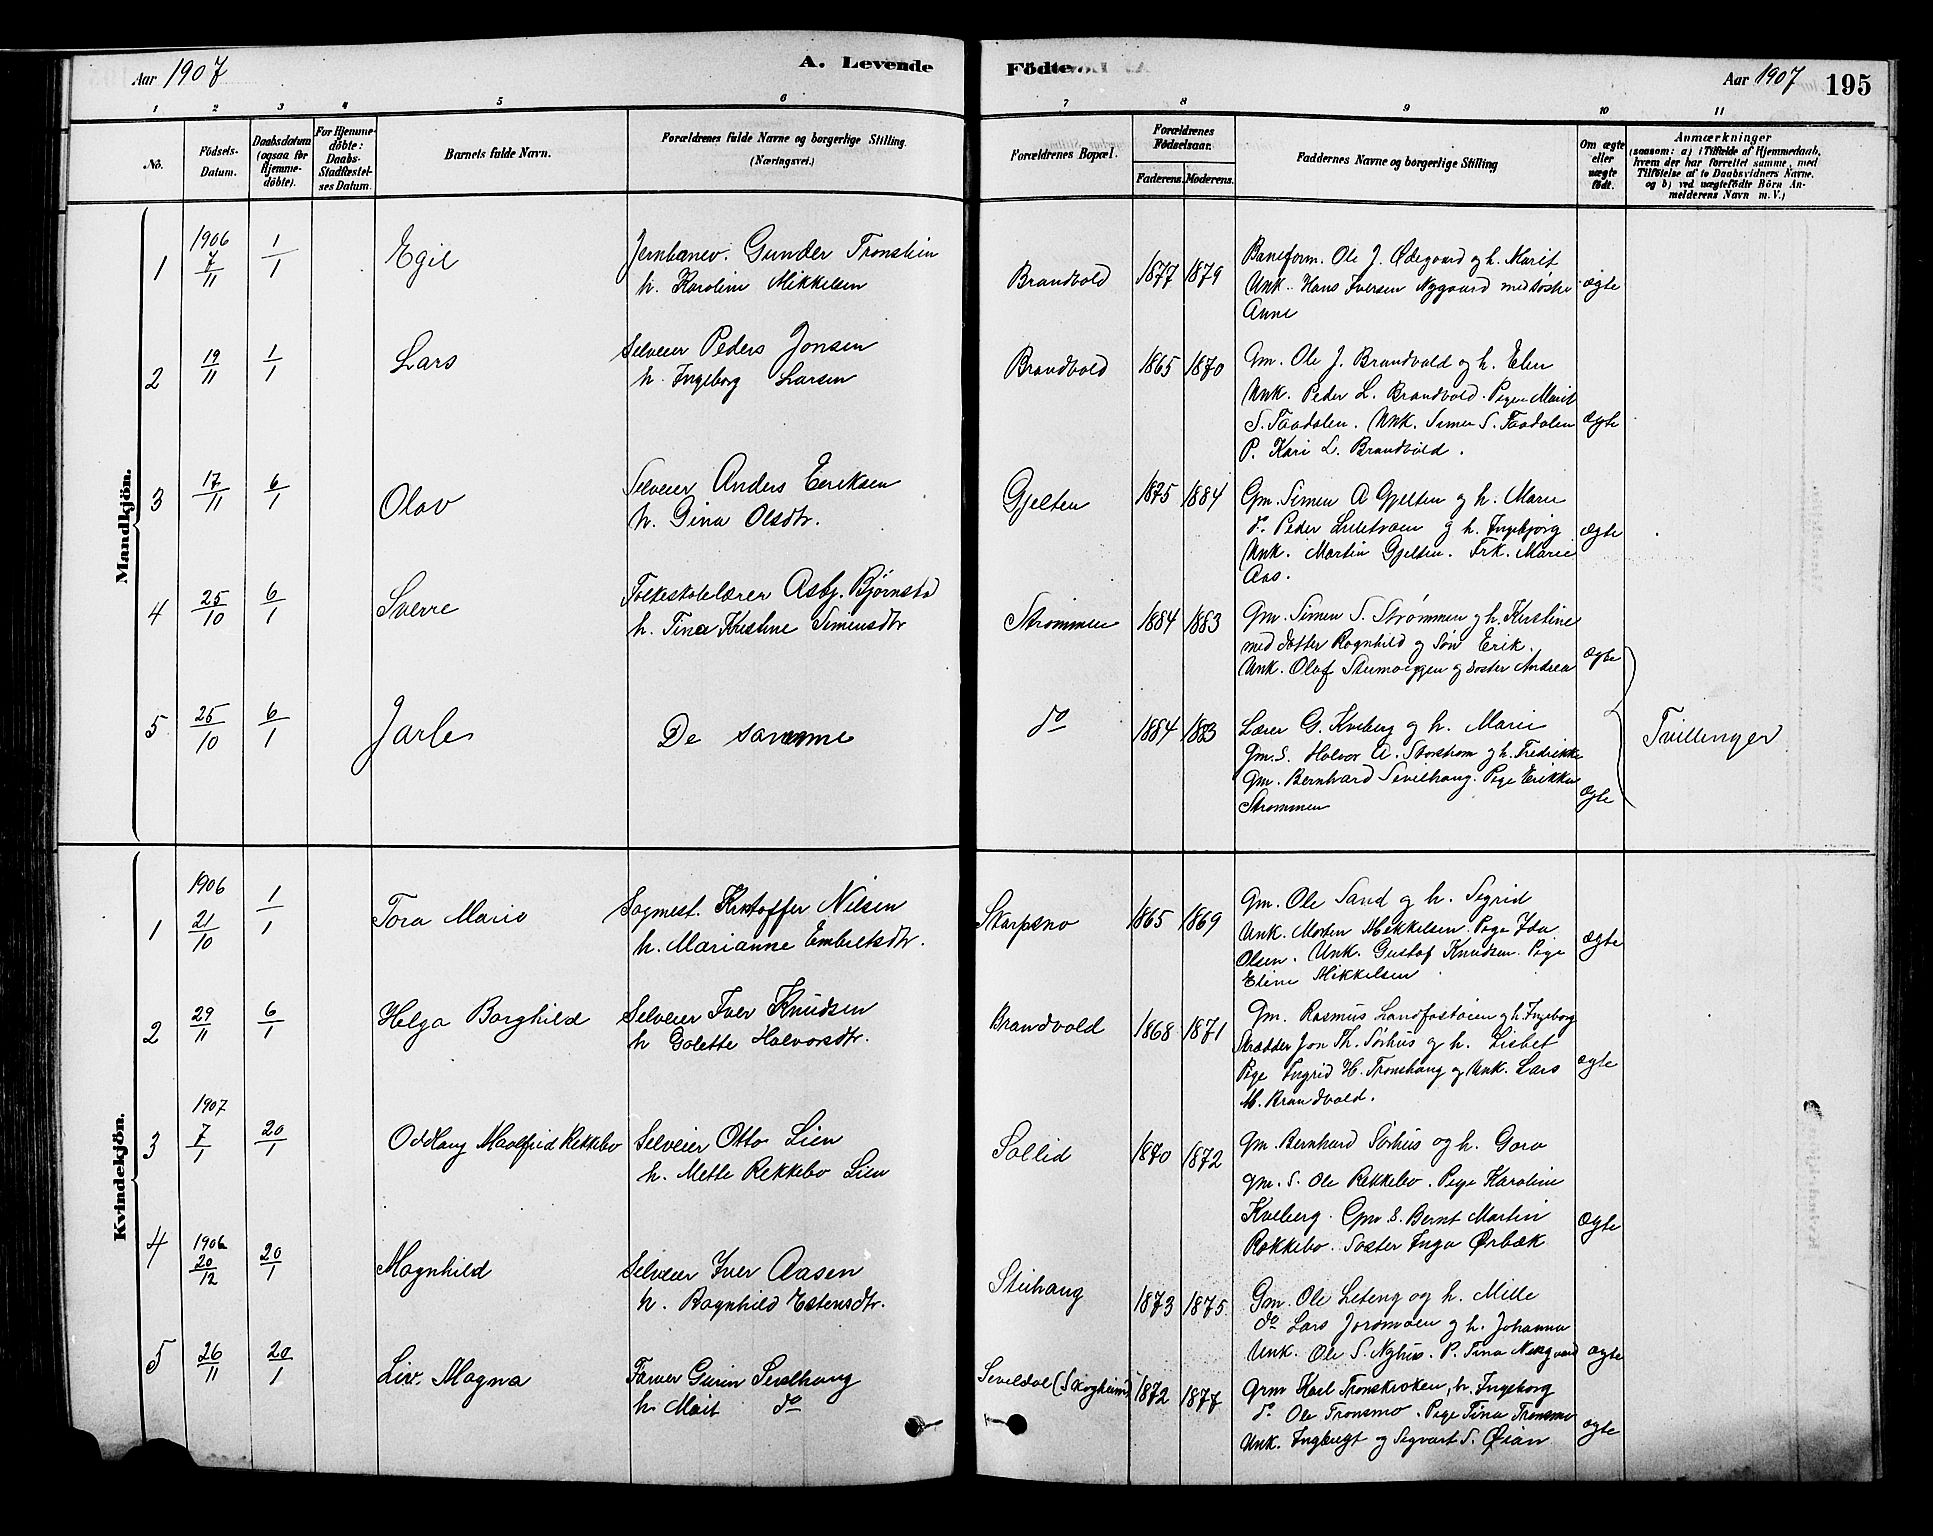 Aar 1907
A. Levende
Födte
Aar 1907 195
1 2 3 4 5 6 7 8 9 10 11
No.
Födsels-Datum.
Daabsdatum (ogsaa for Hjemme-döbte).
For Hjemme-döbte: Daabs-Stadfæstel-ses Datum.
Barnets fulde Navn.
Forældrenes fulde Navne og borgerlige Stilling.
(Næringsvei.)
Forældrenes Bopæl.
Forældrenes Födselsaar.
Faderens. Moderens.
Faddernes Navne og borgerlige Stilling
Om ægte eller uægte födt.
Anmærkninger
(saasom: a) i Tilfælde af Hjemmedaab,
hvem der har forrettet samme, med
Tilföielse af to Daabsvidners Navne,
og b) ved uægtefödte Börn An-
melderens Navn m. V.)
Mandkjön.
1 1906 7/11 1/1 Egil
Jernbanev. Gunder Tronslien
h. Karoline Mikkelsen
Brandvold 1877 1879
Baneform. Ole J. Ødegaard og h. Marit
Unk. Hans Iversen Nygaard med Søster
Anne
ægte
2 19/11 1/1 Lars
Selveier Peders Jonsen
h. Ingeborg Larsen
Brandvold 1865 1870
Gm. Ole J. Brandvold og h. Elen
Unk. Peder L. Brandvold. Pigen Marit
S. Taadalen. Unk. Simen S. Taadalen
P. Kari L. Brandvold.
Ægte
3 17/11 6/1 Olav
Selveier Anders Eriksen
h. Gina Olsdtr.
Gjelten 1875 1884
Gm. Simen A Gjelten og h. Marie
do. Peder Lilletrøen og h. Ingebjørg
Unk. Martin Gjelten. Frk. Marie
Aas.
Ægte
4 25/10 6/1 Sverre
Folkeskolelærer Asbj. Bjørnstad
h. Tina Kristine Simensdtr
Strømmen 1884 1883
Gm. Simen S. Strømmen og h. Kirstine
med Datter Ragnhild og Søn Erik.
Unk. Olaf Steimoeggen og Søster Andrea
Ægte
5 25/10 6/1 Jarle
De samme
do 1884 1883
Lærer G. Kveberg og h. Marie
Gm. S. Halvor A. Storstrøm og h. Fredrikke
Gm. Bernhard Sevilhaug. Pige Erikka
Strømmen
Ægte
Tvillinger
Kvindekjön.
1 1906 21/10 1/1 Tora Marie
Sagmest. Kristoffer Nilsen
h. Marianne Embretsdtr.
Skarpsno 1865 1869
Gm. Ole Sand og h. Sigrid
Unk. Morten Mikkelsen. Pige Ida
Olsen. Unk. Gustaf Knudsen. Pige
Eline Mikkelsen
Ægte
2 29/11 6/1 Helga Borghild
Selveier Iver Knudsen
h Golette Halvorsdtr.
Brandvold 1868 1871
Gm. Rasmus Landfastøien og h. Ingeborg
Skrædder Jon Th. Sørhus og h. Lisbet
Pige Ingrid H. Tronshaug og Unk. Lars
M. Brandvold.
Ægte
3 1907 7/1 20/1 Oddlaug Maalfrid Rekkebo
Selveier Otto Lien
h. Mette Rekkebo Lien
Sollid 1870 1872
Gm. Bernhard Sørhus og h. Goro
Gm. S. Ole Rekkebo. Pige Karoline
Kveberg. Gm S. Bernt Martin
Rekkebo. Søster Inga Ørbæk
Ægte
4 1906 20/12 20/1 Magnhild
Selveier Iver Aasen
h. Ragnhild Estensdtr.
Steihaug 1873 1875
Gm. Ole Leteng og h. Mille
do Lars Jordmoen og h. Johanna
Unk. Ole S. Nyhus. P. Tina
Ægte
5 26/11 20/1 Liv. Magna
Farver Gurin Sevilhaug
h. Marit do
Sevildal (Skogheim) 1872 1877
Grm Karl Tronskroken, h. Ingeborg
do. Ole Tronsmo. Pige Tina Tronsmo
Unk. Ingbrigt og Sigvart S. Øian
Ægte